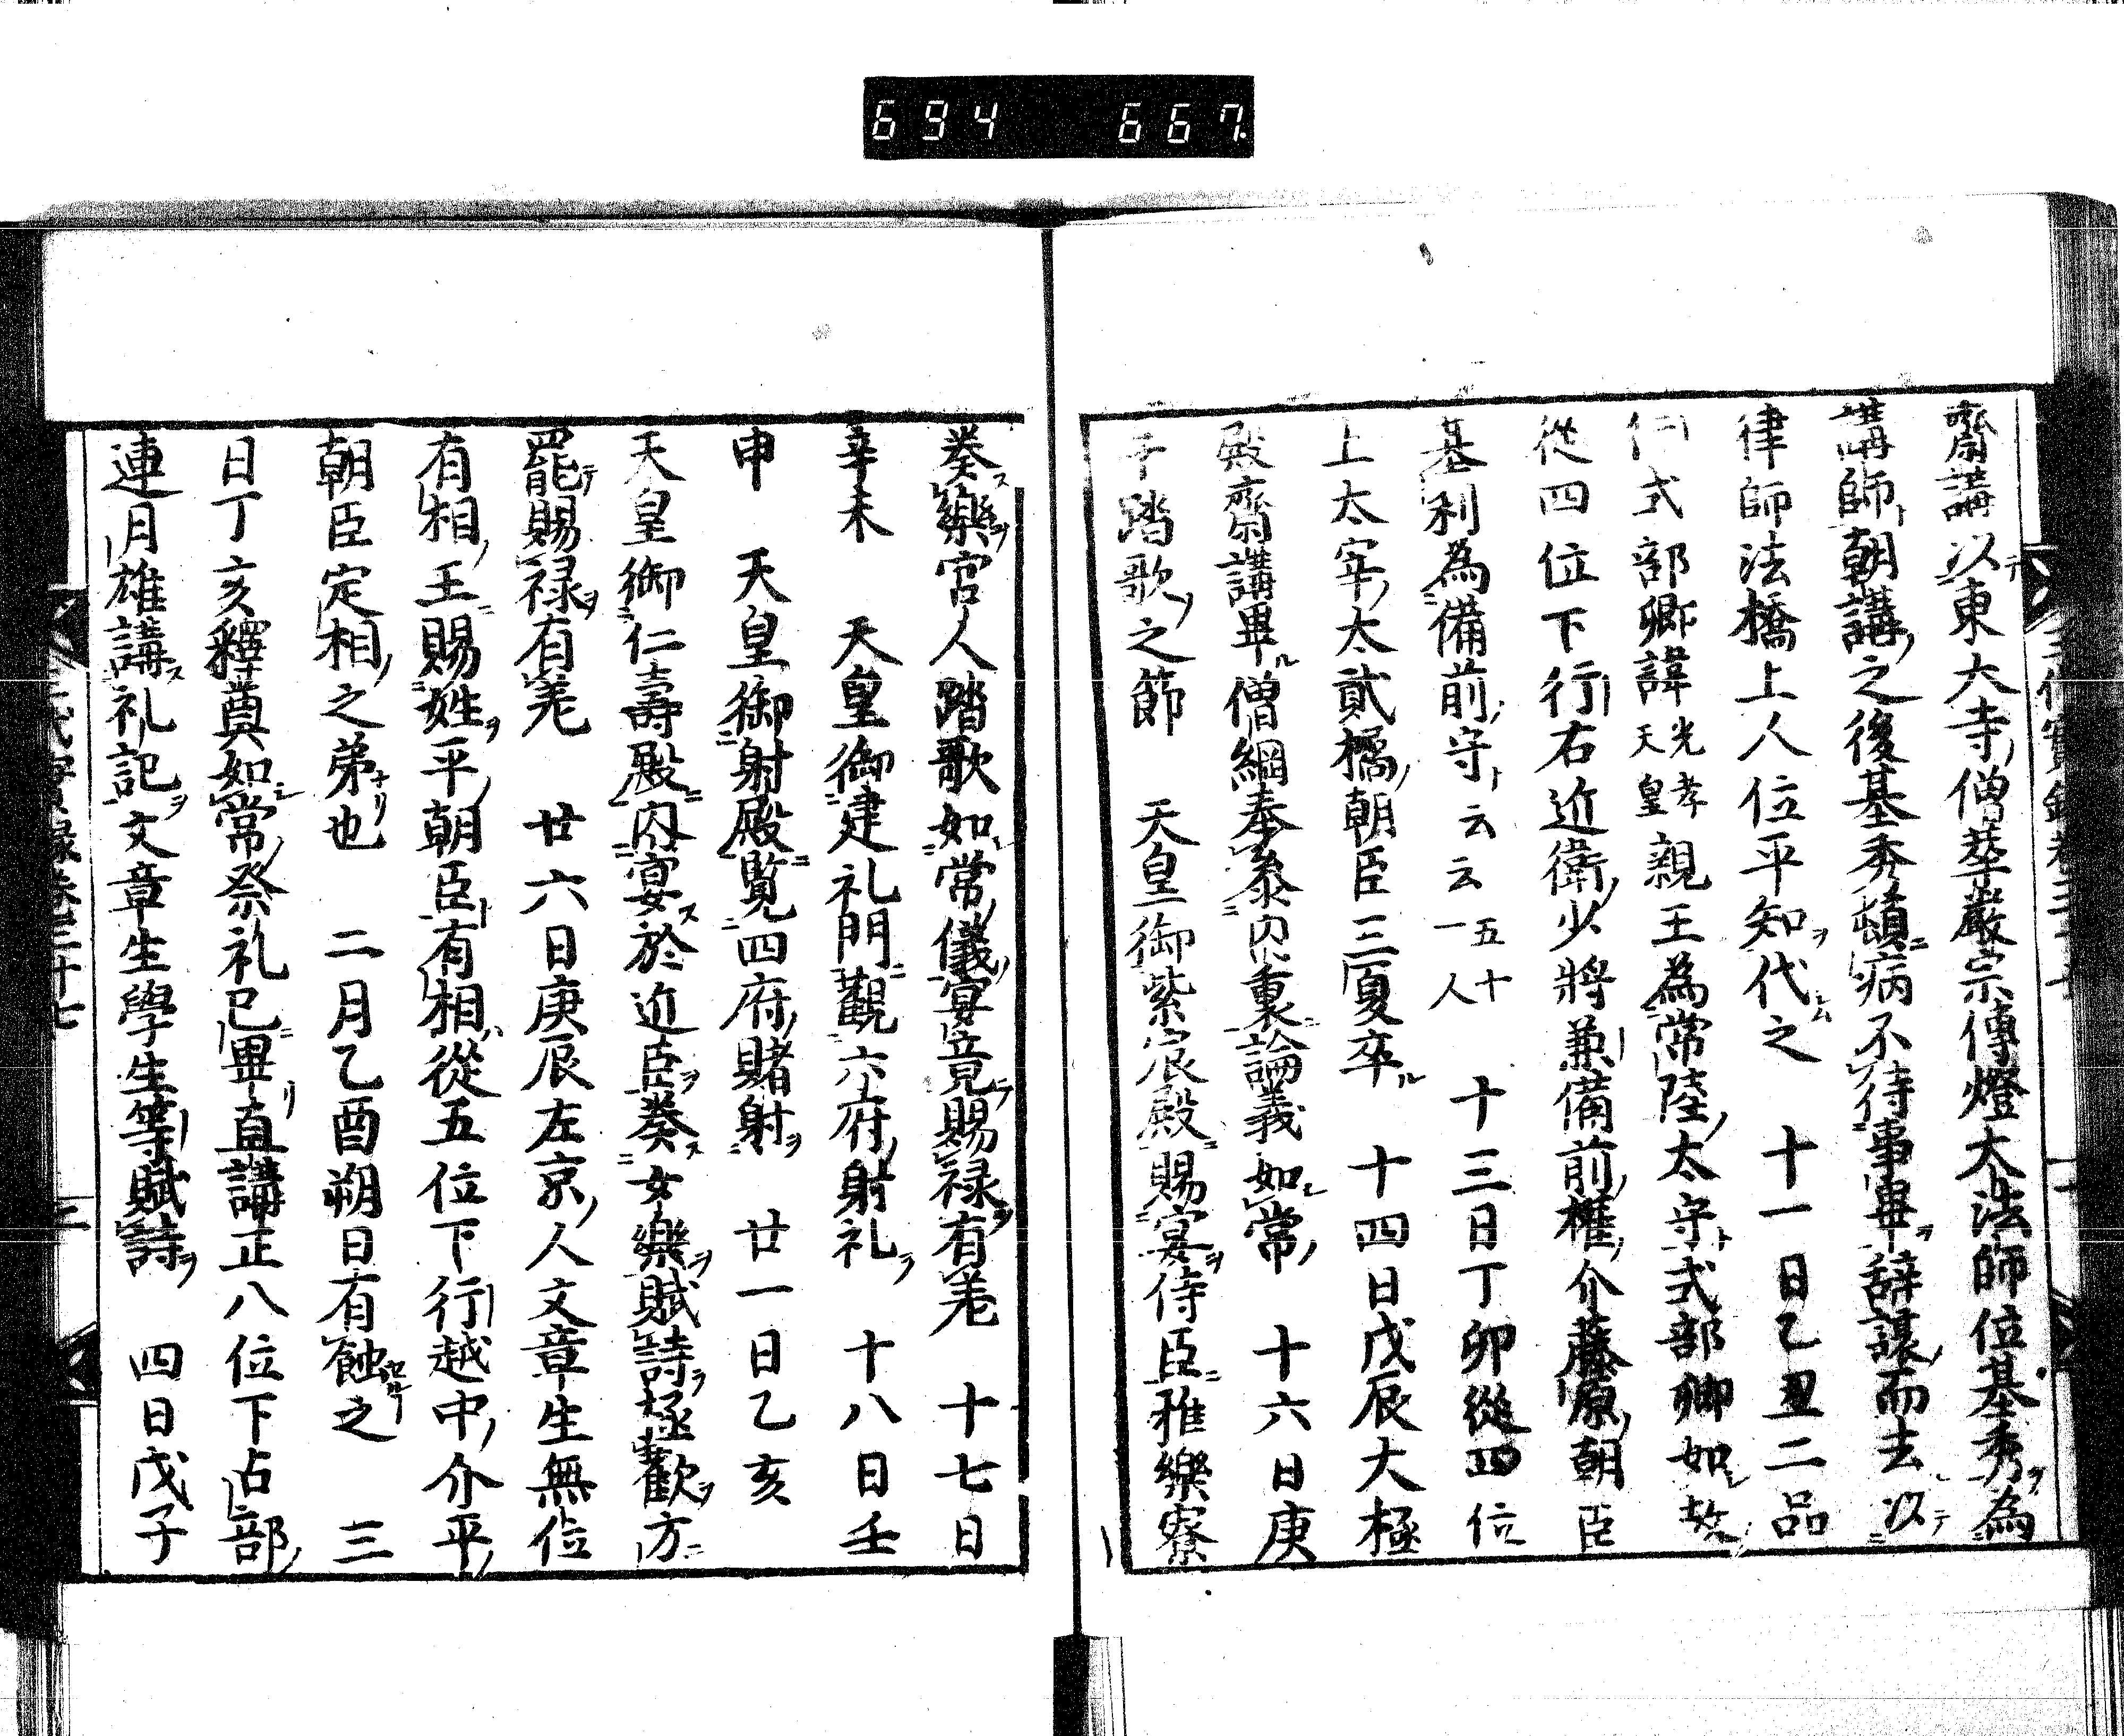 694 667.
齋講以東大寺僧萃嚴宗傳燈大法師位基秀為
講師朝講之後基秀頓病不待事畢辞謀而去以
律師法橋上人位平知代之　十一日乙丑二品
行式部卿諱光孝天皇親王為常陸太守式部卿如故
從四位下行右近衛少將兼備前權介藤原朝臣
基利為備前守云云五十一人　十三日丁卯從四位
上太宰太貳橘朝臣三夏卒　十四日戊辰大極
殿齋講畢僧綱奉參内裏論義如常　十六日庚
午踏歌之節　天皇御紫宸殿賜宴侍臣雅樂寮
奏樂宮人踏歌如常儀宴竟賜禄有差　十七日
辛未　天皇御建礼門觀六府射礼　十八日壬
申　天皇御射殿覧四府賭射　廿一日乙亥
天皇御仁壽殿内宴於近臣奏女樂賦詩極歡方
罷賜禄有差　廿六日庚辰左京人文章生無位
有相王賜姓平朝臣有相從五位下行越中介平
朝臣定相之弟也　二月乙酉朔日有蝕之　三
日丁亥釋奠如常祭礼已畢直講正八位下占部
連月雄講礼記文章生學生等賦詩　四日戊子